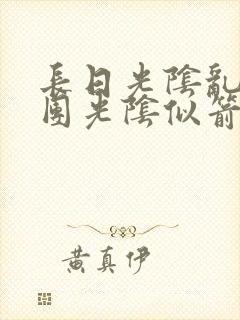 長日光陰亂
團光陰似箭
黄真伊